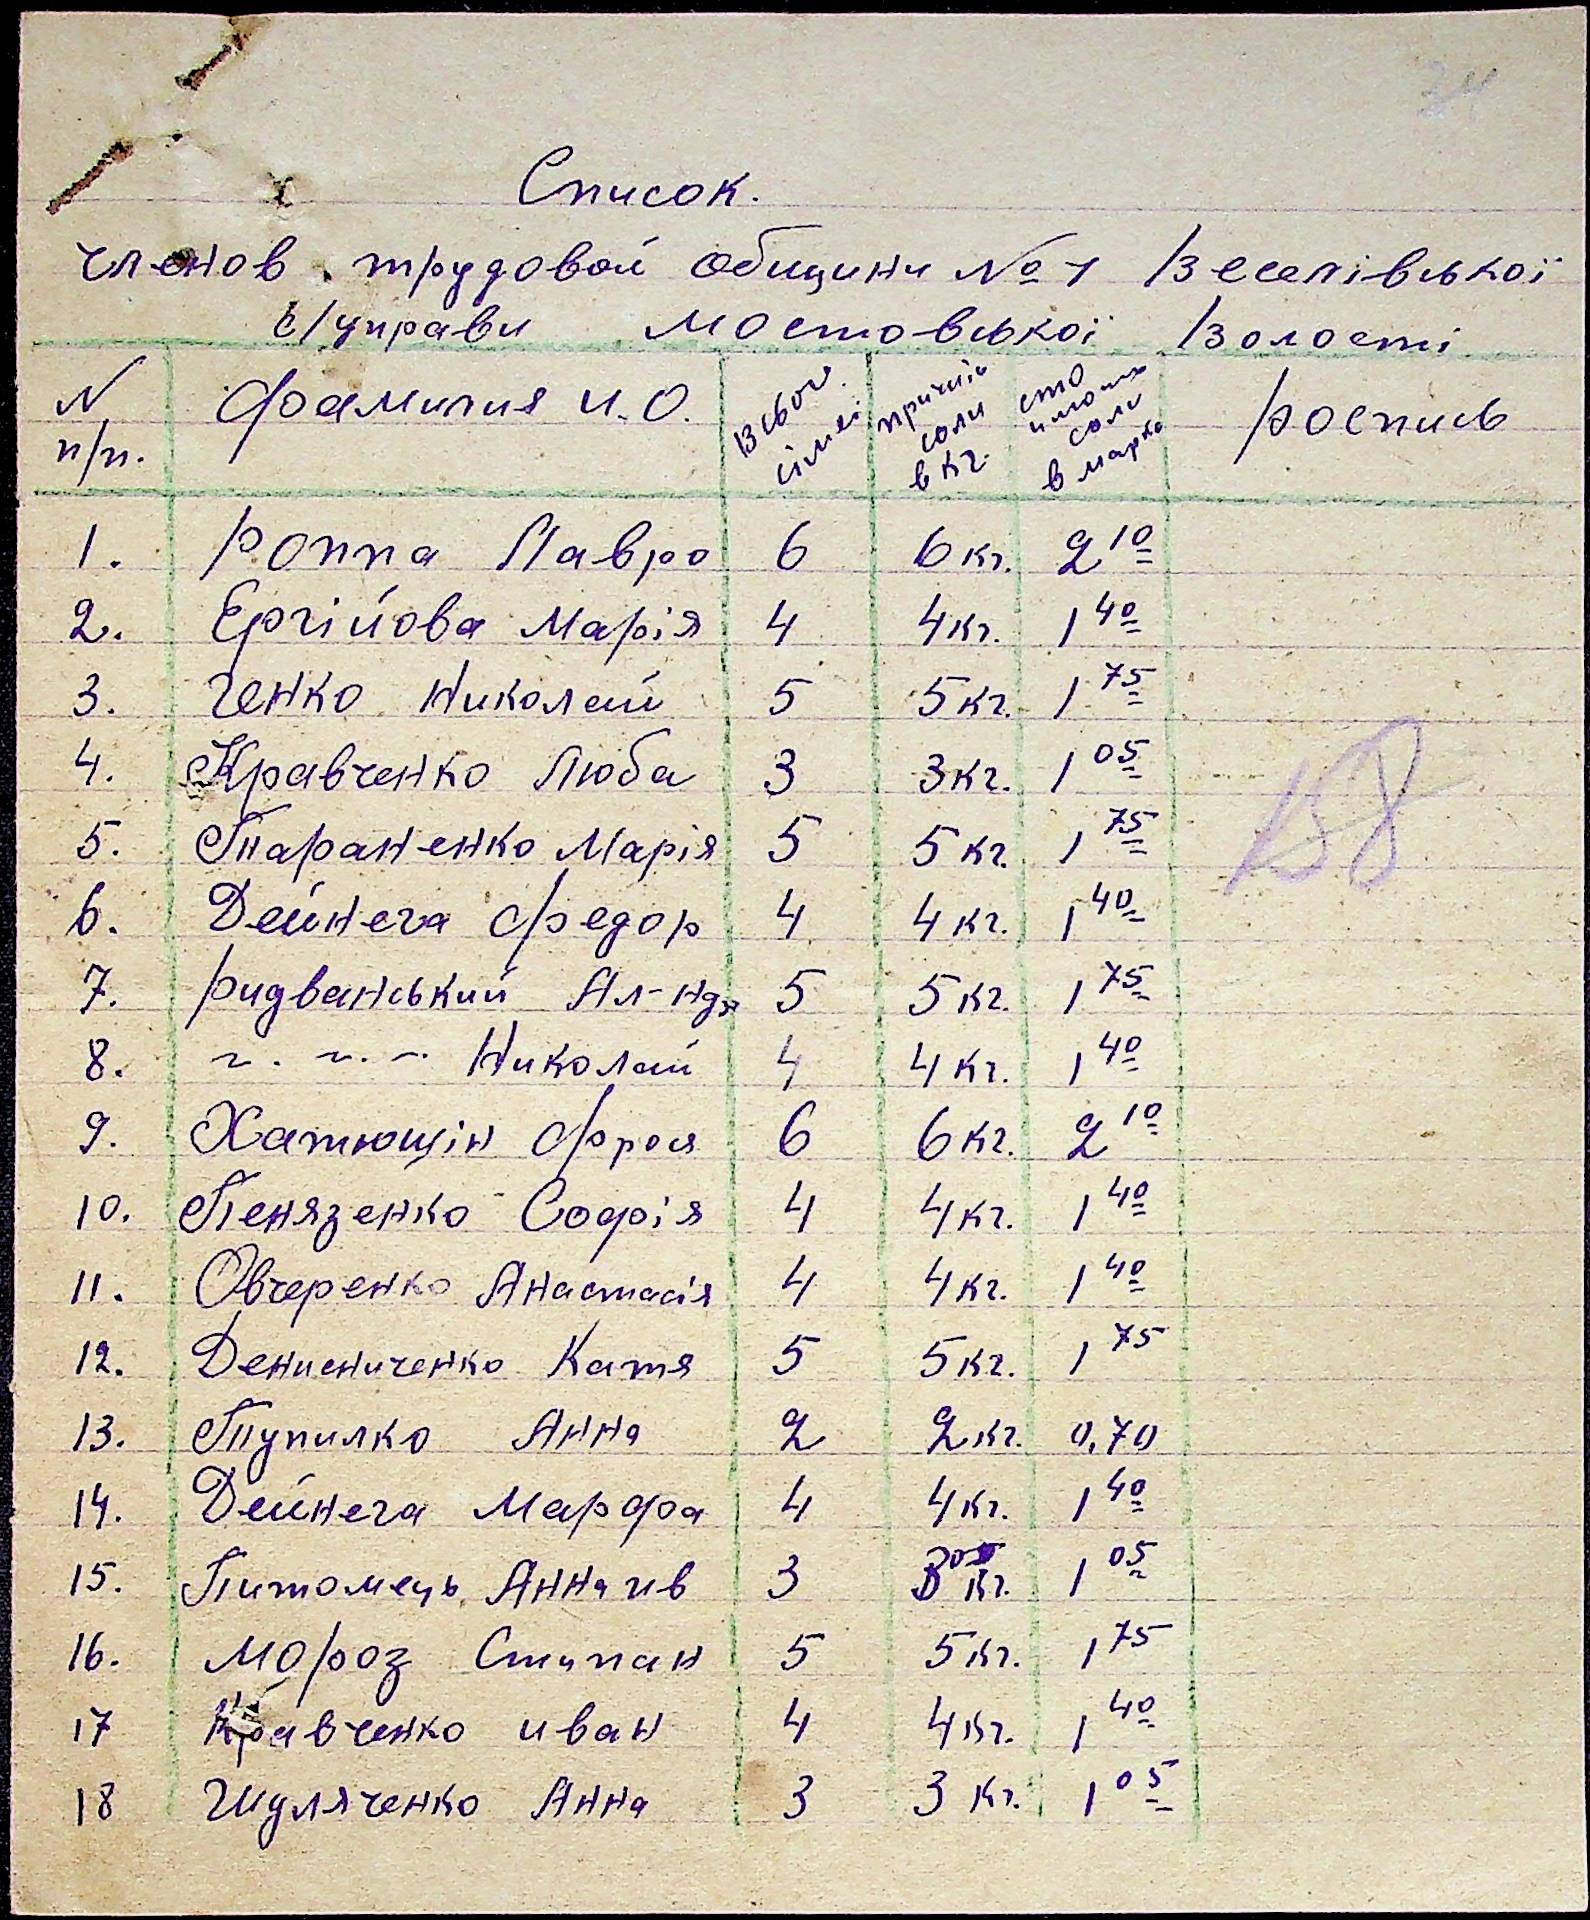 34
Список.
членов трудовой общини № 1 Веселівської
с/управи Мостовської Волості
N п/п. Фамилия И.О. Всього сімєі причит. соли в кг. стоимость соли в марка роспись
1. Роппа Лавро 6 6 кг. 2 10
2. Ергійова Марія 4 4 кг. 1 40
3. Ченко Николай 5 5 кг. 1 75
4. Кравченко Люба 3 3 кг. 1 05
5. Тараненко Марія 5 5 кг. 1 75
6. Дейнега Федор 4 4 кг. 1 40
7. Ридванський Ал-ндр 5 5 кг. 1 75
8. -"- -"- Николай 4 4 кг. 1 40
9. Хатющін Фрося 6 6 кг. 2 10
10. Пенязенко Софія 4 4 кг. 1 40
11. Овчеренко Анастасія 4 4 кг. 1 40
12. Денисниченко Катя 5 5 кг. 1 75
13. Тупилко Анна 2 2 кг. 0,70
14. Дейнега Марфа 4 4 кг. 1 40
15. Питомець Анна ив 3 3 кг. 1 05
16. Мороз Стипан 5 5 кг. 1 75
17 Кравченко иван 4 4 кг. 1 40
18 Шуляченко Анна 3 3 кг. 1 05
158